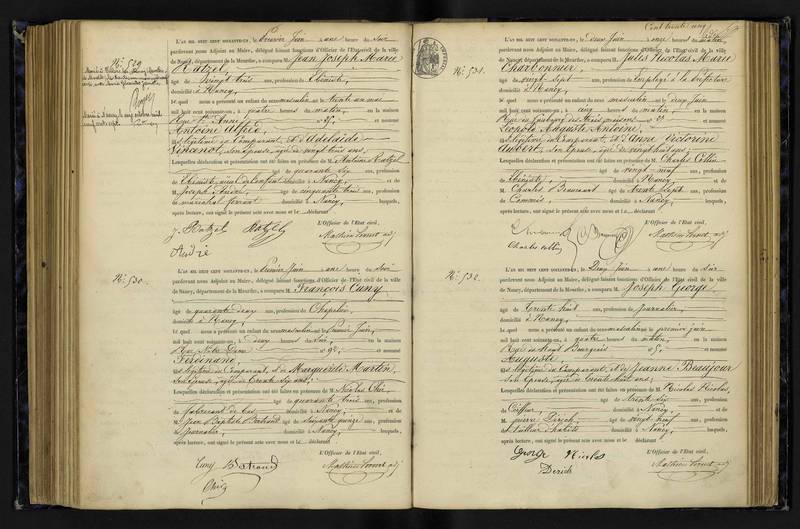 N.° 529.
L'AN MIL HUIT CENT SOIXANTE-UN, le Premier Juin à une heure du Soir
pardevant nous Adjoint au Maire, délégué faisant fonctions d'Officier de l'État civil de la ville
de Nancy, département de la Meurthe, a comparu M. Jean Joseph Marie
Hatzel
âgé de Vingt huit ans, profession de Ébéniste,
domicilié à Nancy,
lequel nous a présenté un enfant du sexe masculin né le trente un mai
mil huit cent soixante-un, à quatre heures du matin, en la maison
Rue Ste Anne et nommé
Antoine Alfred
fils légitime du Comparant, et d'Adélaïde
Vincent, son épouse, âgée de vingt trois ans;
Lesquelles déclaration et présentation ont été faites en présence de M. Antoine Hatzel
âgé de quarante six ans, profession
de Ébéniste, domicilié à Nancy, et de
M. Joseph André âgé de cinquante trois ans, profession
de maréchal ferrant domicilié à Nancy, lesquels,
après lecture, ont signé le présent acte avec nous et le déclarant
L'Officier de l'État civil,
J. Hatzel Hatzel
André
N.° 530.
L'AN MIL HUIT CENT SOIXANTE-UN, le Premier Juin à une heure du Soir
pardevant nous Adjoint au Maire, délégué faisant fonctions d'Officier de l'État civil de la ville
de Nancy, département de la Meurthe, a comparu M. François Cuny
âgé de quarante deux ans, profession de Chapelier,
domicilié à Nancy,
lequel nous a présenté un enfant du sexe masculin né le Premier Juin,
mil huit cent soixante-un, à deux heures du Soir, en la maison
Rue Notre Dame n° 92, et nommé
Ferdinand
fils légitime du Comparant, et de Marguerite Martin,
son épouse, âgée de trente six ans;
Lesquelles déclaration et présentation ont été faites en présence de M. Nicolas
âgé de quarante trois ans, profession
de fabricant de bas domicilié à Nancy, et de
M. Jean Baptiste Bertrand âgé de soixante quinze ans, profession
de Journalier, domicilié à Nancy, lesquels,
après lecture, ont signé le présent acte avec nous et le déclarant
L'Officier de l'État civil,
Cuny Bertrand
Cent trente cinq
N.° 531.
L'AN MIL HUIT CENT SOIXANTE-UN, le Deux Juin à onze heures du matin,
pardevant nous Adjoint au Maire, délégué faisant fonctions d'Officier de l'État civil de la ville
de Nancy, département de la Meurthe, a comparu M. Jules Nicolas Marie
Charbonnier
âgé de vingt sept ans, profession de Employé à la Préfecture
domicilié à Nancy,
lequel nous a présenté un enfant du sexe masculin né le deux Juin
mil huit cent soixante-un, à cinq heures du matin, en la maison
Rue du faubourg des trois maisons n° et nommé
Léopold Auguste Antoine,
fils légitime du Comparant, et d'Anne Victorine
Aubert, son épouse, âgée de vingt huit ans;
Lesquelles déclaration et présentation ont été faites en présence de M. Charles Collin
âgé de vingt neuf ans, profession
de Ébéniste domicilié à Nancy et de
M. Charles âgé de trente sept ans, profession
de Commis, domicilié à Nancy, lesquels,
après lecture, ont signé le présent acte avec nous et le déclarant
L'Officier de l'État civil,
Charles Collin
N.° 532.
L'AN MIL HUIT CENT SOIXANTE-UN, le Deux Juin à une heure du Soir
pardevant nous Adjoint au Maire, délégué faisant fonctions d'Officier de l'État civil de la ville
de Nancy, département de la Meurthe, a comparu M. Joseph George
âgé de trente huit ans, profession de Journalier
domicilié à Nancy,
lequel nous a présenté un enfant du sexe masculin né le premier juin
mil huit cent soixante-un, à quatre heures du matin, en la maison
Rue du haut Bourgeois n° 5, et nommé
Auguste,
fils légitime du Comparant, et de Jeanne Beaujour
son épouse, âgée de trente huit ans;
Lesquelles déclaration et présentation ont été faites en présence de M. Nicolas Nicolas,
âgé de trente six ans, profession
de Coiffeur, domicilié à Nancy et de
M. pierre Derich, âgé de vingt neuf ans, profession
de tailleur d'habits domicilié à Nancy, lesquels,
après lecture, ont signé le présent acte avec nous et le déclarant
L'Officier de l'État civil,
George Nicolas
Derich